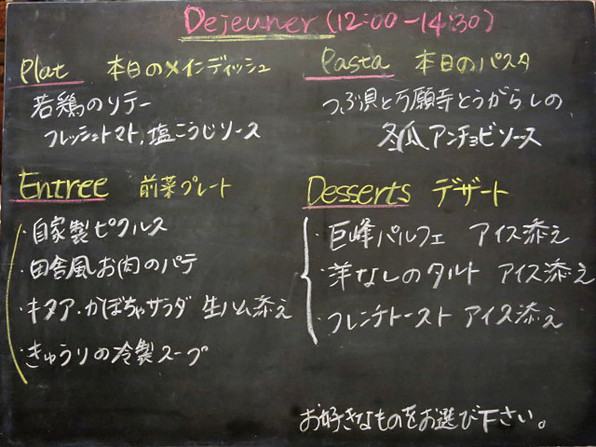 Dejeuner (12:00-14:30)
Plat 本日のメインディッシュ
若鶏のソテー
フレッシュトマト,塩こうじソース
Pasta 本日のパスタ
つぶ貝と万願寺とうがらしの、
冬瓜アンチョビソース
Entree 前菜プレート
・自家製ピクルス
・田舎風お肉のパテ
・キヌア・かぼちゃサラダ 生ハム添え
・きゅうりの冷製スープ
Desserts デザート
・巨峰パルフェ アイス添え
・洋なしのタルト アイス添え
・フレンチトースト アイス添え
お好きなものをお選び下さい。